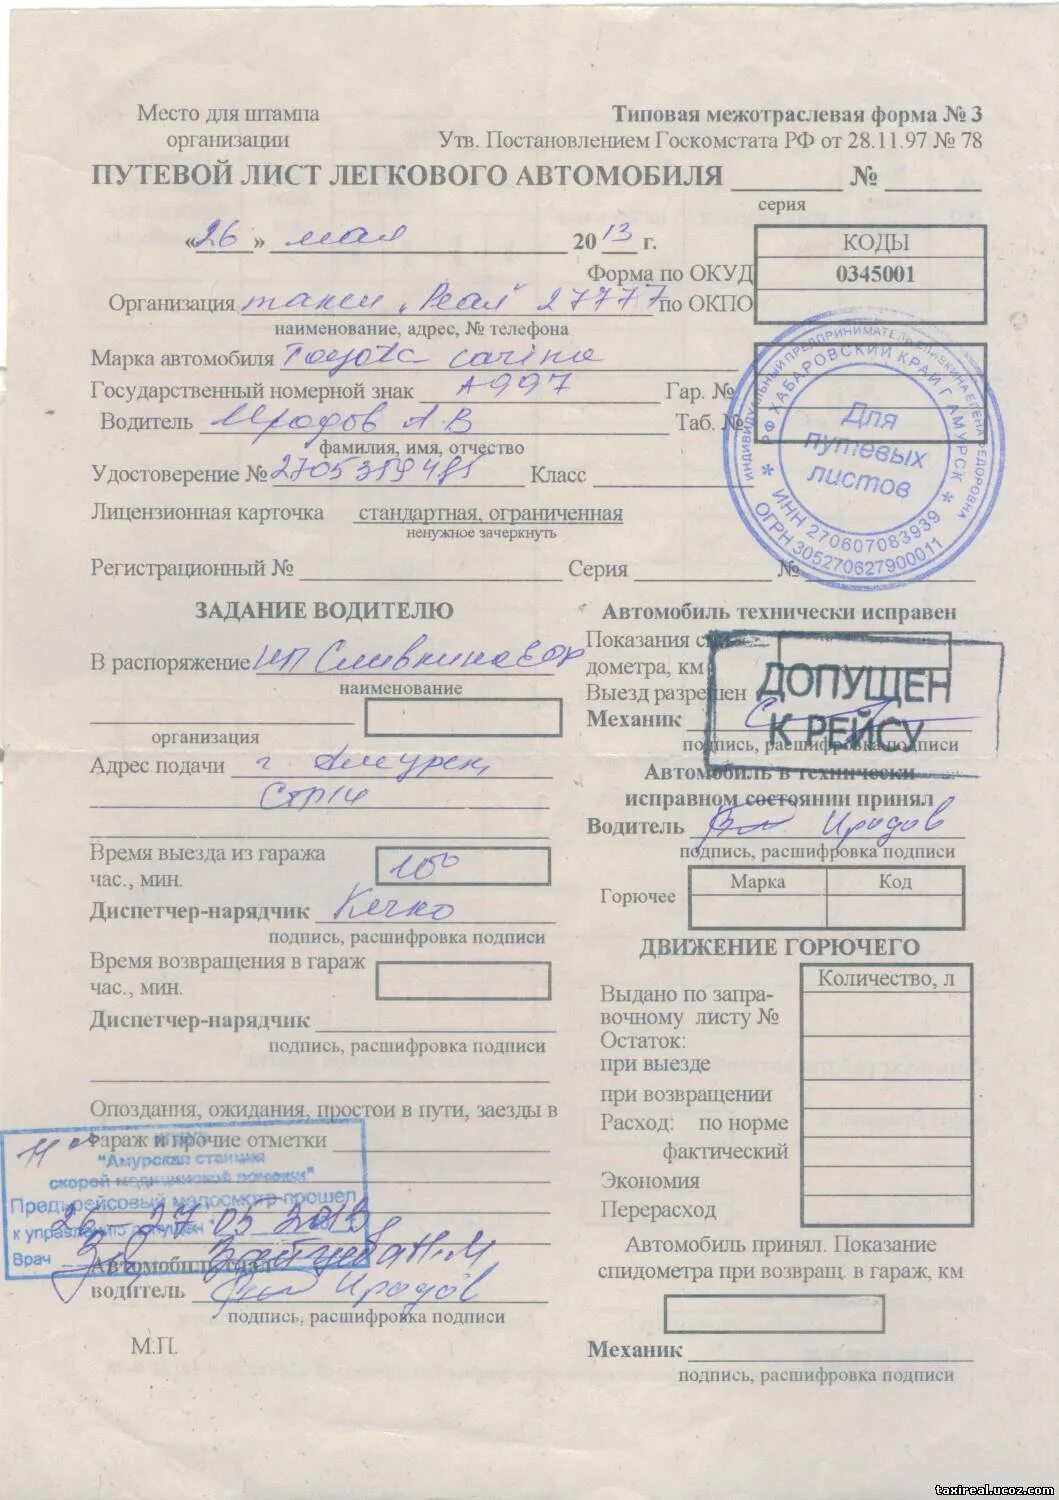 Место для штампа
организации
Типовая межотраслевая форма № 3
Утв. Постановлением Госкомстата РФ от 28.11.97 № 78
ПУТЕВОЙ ЛИСТ ЛЕГКОВОГО АВТОМОБИЛЯ № 
серия
«26» мая 2013 г.
КОДЫ
Форма по ОКУД 0345001
Организация такси "Реал" 27777 по ОКПО
наименование, адрес, № телефона
Марка автомобиля Toyota carina
Государственный номерной знак А997 Гар. №
Водитель Иродов А.В Таб. №
фамилия, имя, отчество
Удостоверение № Класс
Лицензионная карточка стандартная, ограниченная
ненужное зачеркнуть
Регистрационный № Серия №
ИНДИВИДУАЛЬНЫЙ ПРЕДПРИНИМАТЕЛЬ СЛИВКИНА ЕЛЕНА ФЕДОРОВНА
РФ ХАБАРОВСКИЙ КРАЙ Г АМУРСК
* ИНН 270607083939 *
ОГРН 305270627900011
Для
путевых
листов
ЗАДАНИЕ ВОДИТЕЛЮ
В распоряжение ИП Сливкиновой
наименование
организация
Адрес подачи г Амурск
Время выезда из гаража
час., мин. 10⁰⁰
Диспетчер-нарядчик Кечко
подпись, расшифровка подписи
Время возвращения в гараж
час., мин.
Диспетчер-нарядчик
подпись, расшифровка подписи
Опоздания, ожидания, простои в пути, заезды в
гараж и прочие отметки
"Амурская станция
скорой медицинской помощи"
Предрейсовый медосмотр прошел
26-27 05 2013
к управлению допущен
Врач Зайцева Н.М
Автомобиль сдал
водитель Иродов
подпись, расшифровка подписи
М.П.
Автомобиль технически исправен
Показания спи-
дометра, км
Выезд разрешен
Механик
подпись, расшифровка подписи
ДОПУЩЕН
К РЕЙСУ
Автомобиль в технически
исправном состоянии принял
Водитель Иродов
подпись, расшифровка подписи
Горючее Марка Код
ДВИЖЕНИЕ ГОРЮЧЕГО
Количество, л
Выдано по запра-
вочному листу №
Остаток:
при выезде
при возвращении
Расход: по норме
фактический
Экономия
Перерасход
Автомобиль принял. Показание
спидометра при возвращ. в гараж, км
Механик
подпись, расшифровка подписи
taxireal.ucoz.com